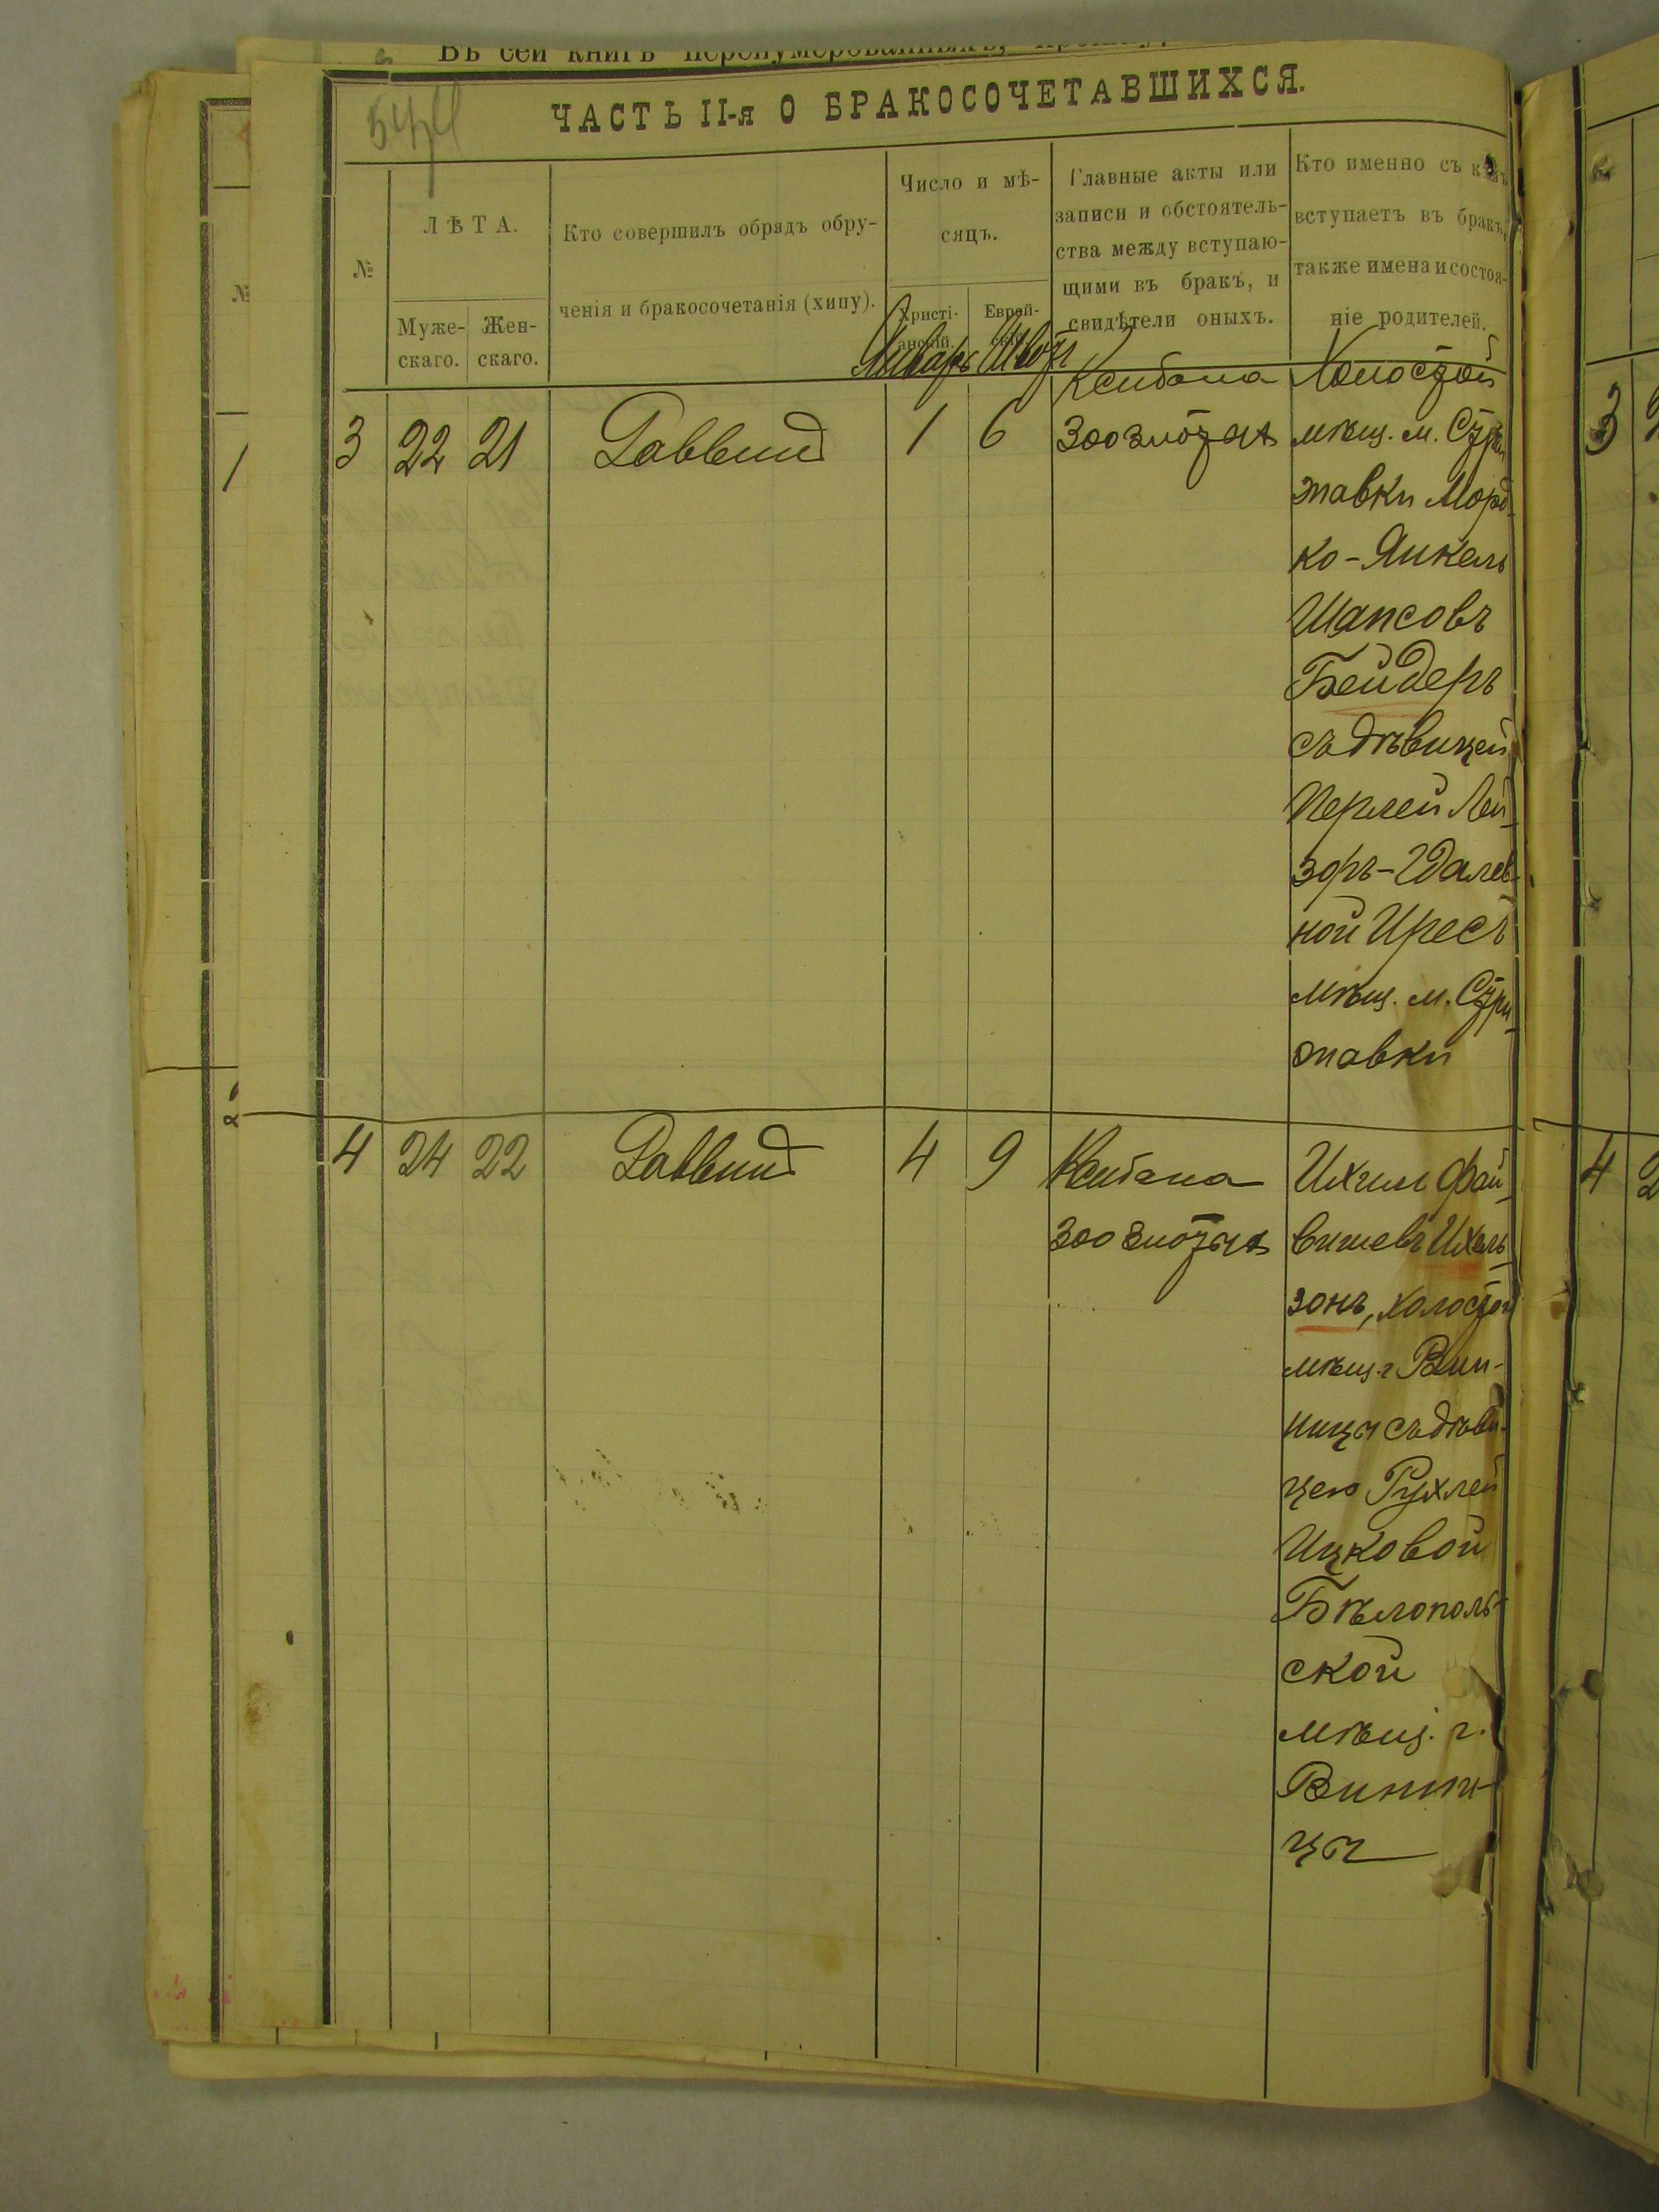 ЧАСТЬ II-я О БРАКОСОЧЕТАВШИХСЯ.
№
ЛѢТА.
Муже-
скаго.
Жен-
скаго.
Кто совершилъ обрядъ обру-
ченія и бракосочетанія (хипу).
Число и мѣ-
сяцъ.
Христі-
анскій.
Еврей-
скій.
Январь
Главные акты или
записи и обстоятель-
ства между вступаю-
щими въ бракъ, и
свидѣтели оныхъ.
Кто именно съ кѣмъ
вступаетъ въ бракъ,
также имена и состоя-
ніе родителей.
3 22 21 Раввинъ 1 6
Ксибана
300 злотыхъ
Холостой
мѣщ. м. Стри
жавки Морд
ко-Янкель
Шапсовъ
Бейдеръ
съ дѣвицей
Перлей Лей-
зоръ-Гдалев-
ной Иресъ
мѣщ. м. Стри-
жавки
4 24 22 Раввинъ 4 9
Ксибана
300 злотыхъ
Ихиль Фай-
вишевъ Ихель-
зонъ, холостой
мѣщ. г. Вин-
ницы съ дѣви-
цею Рухлей
Ицковой
Бѣлополь-
ской
мѣщ. г.
Винни-
цы